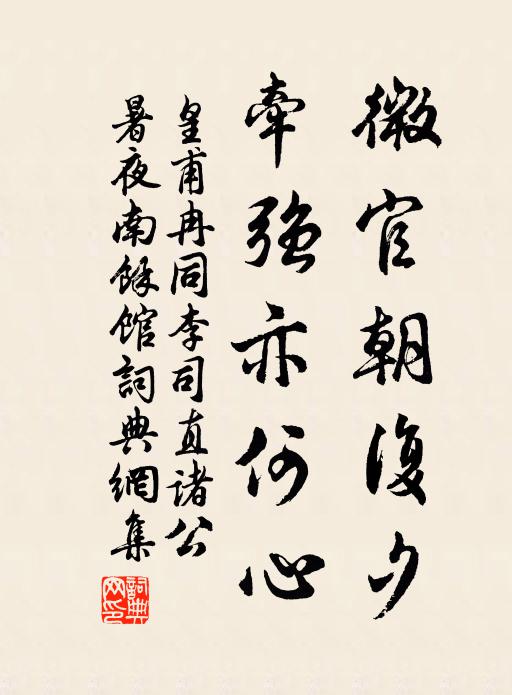 微官朝復夕
牽強亦何心
皇甫冉同李司直諸公
暑夜南餘館詞典網集
詞典網印